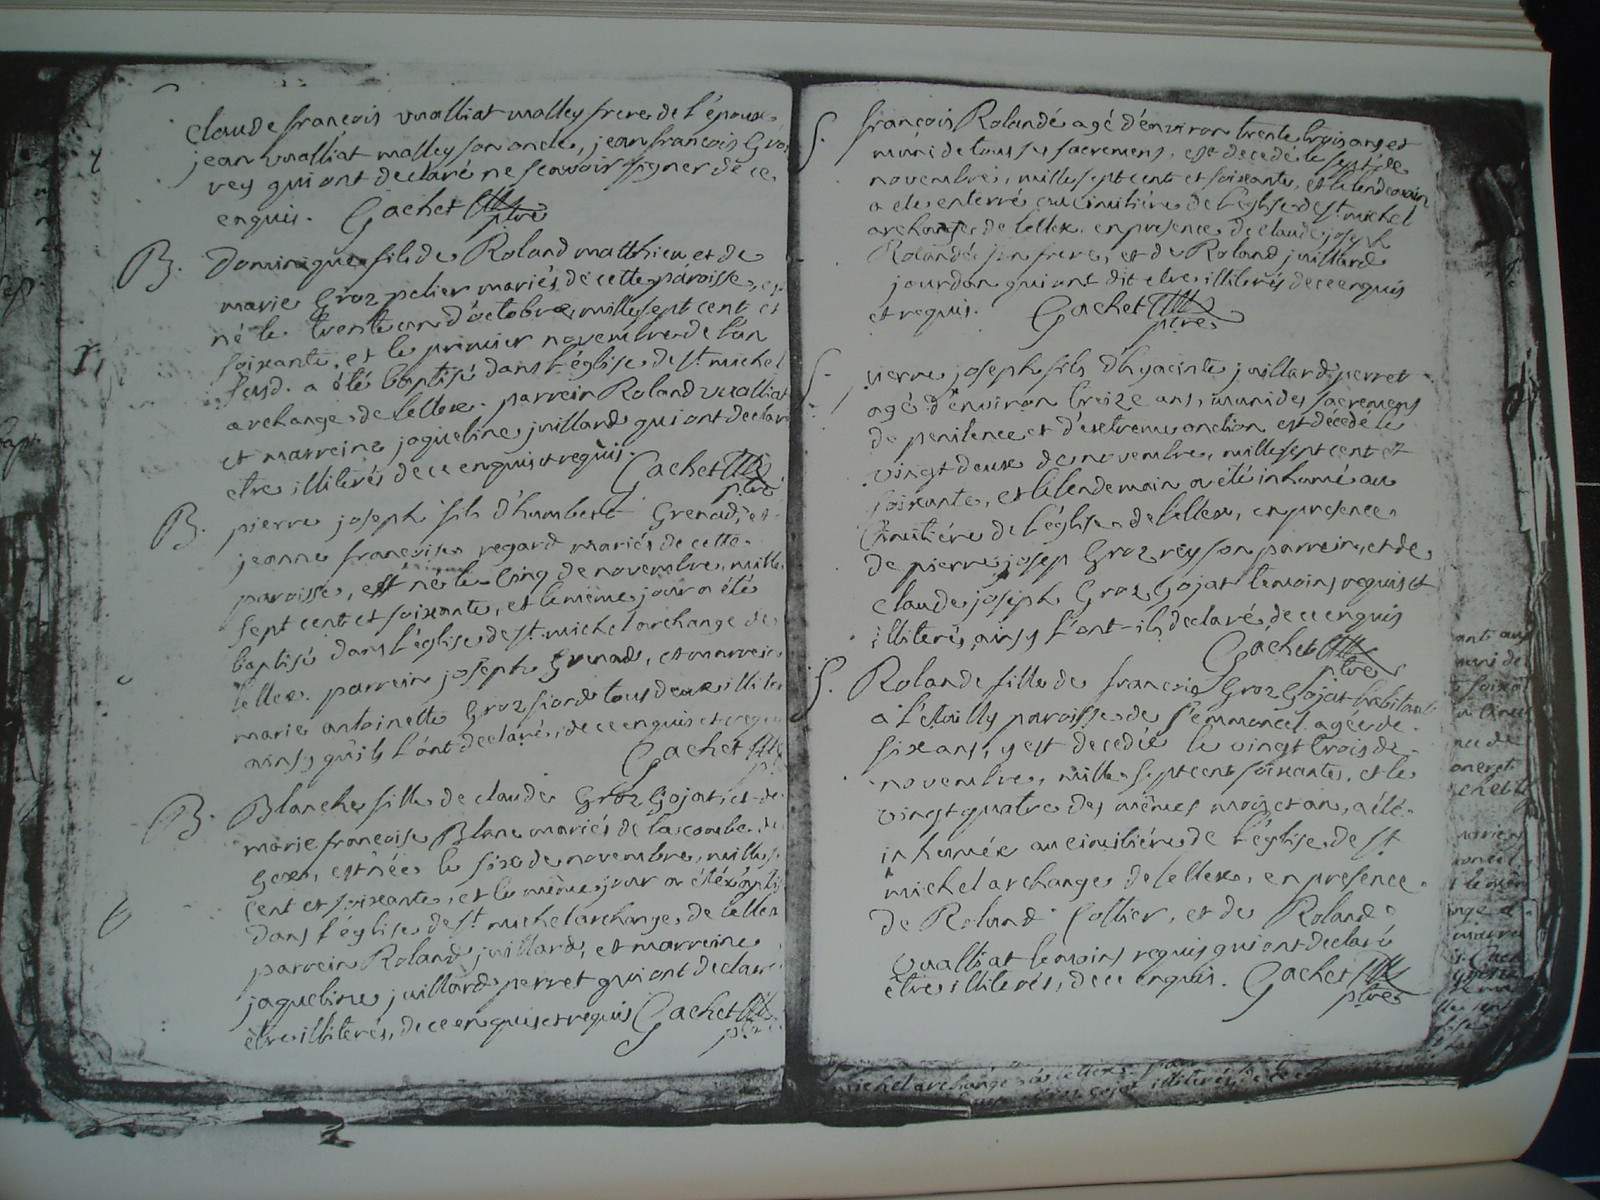 claude françois vualliat malley frere de l'épouse
jean vualliat malley son oncle, jean françois Groz
rey qui ont declaré ne scavoir signer de ce
enquis. Gachet ptre
B. Dominique fils de Roland matthieu et de
marie Groz pelier mariés de cette paroisse, est
né le trente un d'octobre, mille sept cent et
soixante, et le premier novembre de l'an
susd. a été baptisé dans l'église de st. michel
archange de lellex. parrein Roland vualliat
et marreine jaqueline juillard qui ont declaré
etre illiterés de ce enquis et requis. Gachet ptre
B. pierre joseph fils d'humbert Grenad, et
jeanne françoise regard mariés de cette
paroisse, est né le cinq de novembre, mille
sept cent et soixante, et le même jour a été
baptisé dans l'église de st. michel archange de
lellex. parrein joseph Grenad, et marreine
marie antoinette Groz fiard tous deux illiterés
ainsy qu'ils l'ont declaré, de ce enquis et requis
Gachet
B. Blanche fille de claude Groz Gojat, et de
marie françoise Blanc mariés de la combe de
Gex, est née le six de novembre, mille sept
cent et soixante, et le même jour a été baptisé
dans l'église de st. michel archange de lellex
parrein Roland juillard, et marreine
jaqueline juillard perret qui ont declaré
être illiterés, de ce enquis et requis Gachet
S. françois Rolandé agé d'environ trente trois ans et
muni de tous ses sacremens, est decedé le sept de
novembre, mille sept cent et soixante, et le lendemain
a eté enterré au cimitière de l'église de st. michel
archange de lellex. en presence de claude joseph
Rolandé son frere, et de Roland juillard
jourdan qui ont dit etre illiterés de ce enquis
et requis. Gachet ptre
S. pierre joseph fils d'hyacinte juillard perret
agé d'environ treize ans, muni des sacremens
de penitence et d'extreme onction est décédé le
vingt deux de novembre, mille sept cent et
soixante, et le lendemain a été inhumé au
Cimitière de l'église de lellex, en presence
de pierre josep Groz rey son parrein, et de
claude joseph Groz Gojat temoins requis et
illiterés, ainsy l'ont-ils declaré, de ce enquis
Gachet ptre
S. Rolande fille de françois Groz Gojat habitant
a paroisse de agée de
six ans, y est decedée le vingt trois de
novembre, mille sept cent soixante, et le
vingt quatre des mêmes mois et an, a été
inhumée au cimitière de l'église de st
michel archange de lellex, en presence
de Roland et de Roland
vualliat temoins requis qui ont declaré
être illiterés, de ce enquis. Gachet ptre